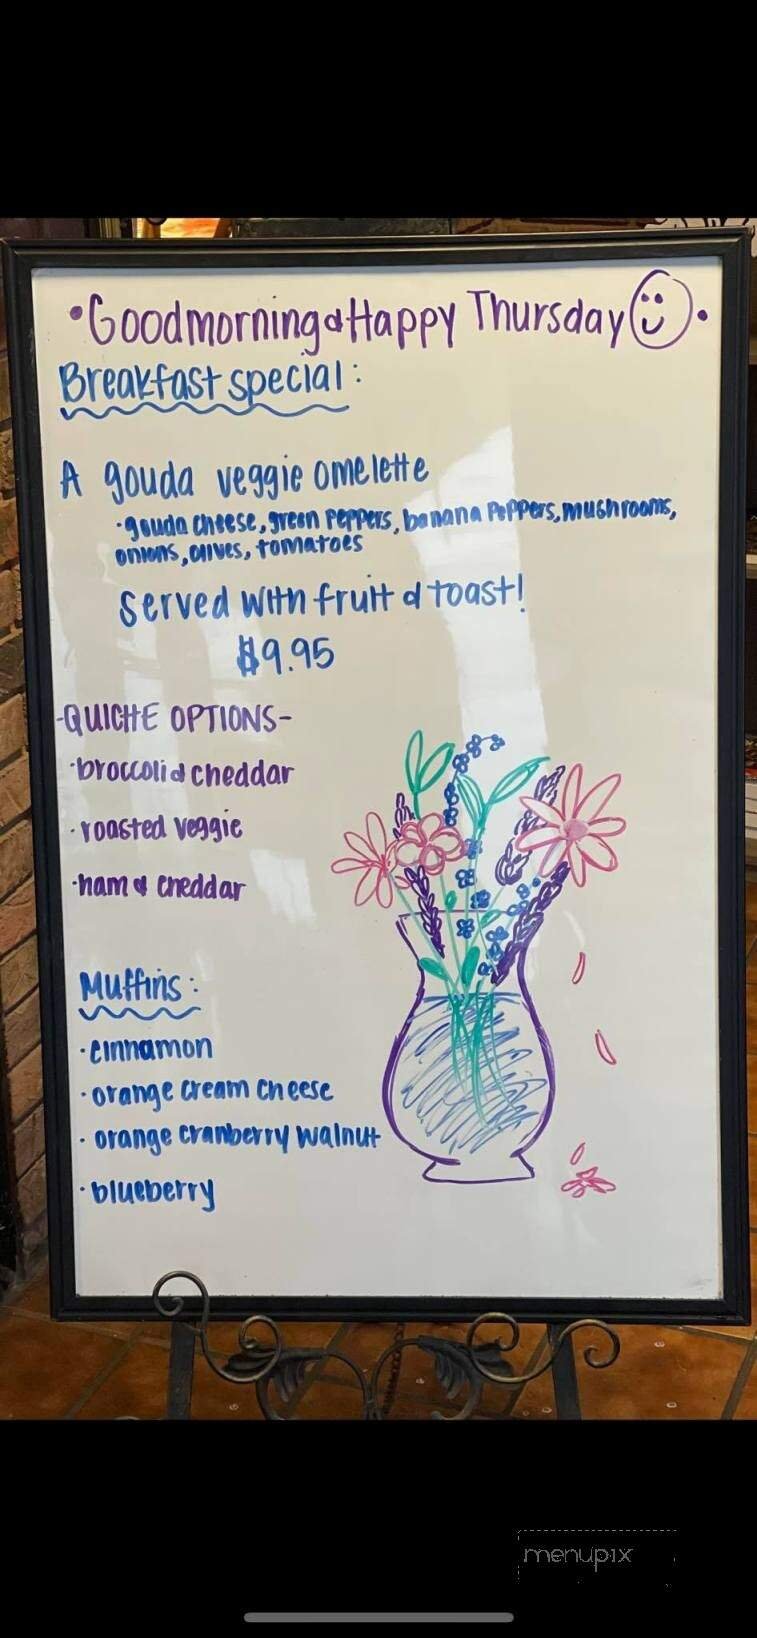 •Goodmorning & Happy Thursday•
Breakfast special:
A gouda veggie omelette
•gouda cheese, green peppers, banana peppers, mushrooms,
onions, olives, tomatoes
Served with fruit & toast!
$9.95
-QUICHE OPTIONS-
•broccoli & cheddar
•roasted veggie
•ham & cheddar
Muffins:
•cinnamon
•orange cream cheese
•orange cranberry walnut
•blueberry
menupix